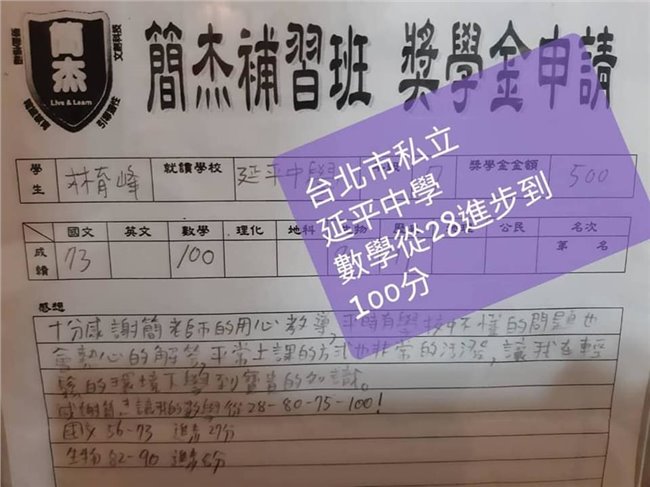 簡杰
Live & Learn
簡杰補習班 獎學金申請
台北市私立
延平中學
數學從28進步到
100分
學生 林育峰 就讀學校 延平中學 獎學金金額 500
國文 英文 數學 理化 地科 公民 名次
成績 73 100 第 名
感想
十分感謝簡老師的用心教導,平時有學校中不懂的問題也
會熱心的解答,平常上課的方式也非常的活潑,讓我在輕
鬆的環境下學到寶貴的知識。
讓我的數學從28-80-75-100!
國文 56-73 進步27分
生物 82-90 進步8分